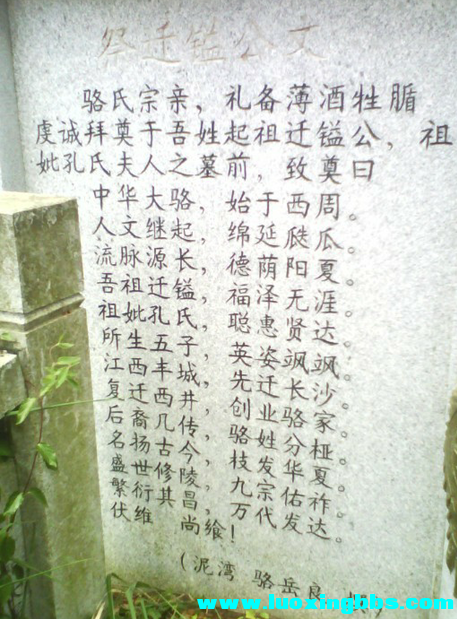 祭迁镒公文
骆氏宗亲，礼备薄酒牲腯
虔诚拜奠于吾姓起祖迁镒公，祖
妣孔氏夫人之墓前，致奠曰
中华大骆，始于西周。
人文继起，绵延瓞瓜。
流脉源长，德荫阳夏。
吾祖迁镒，福泽无涯。
祖妣孔氏，聪惠贤达。
所生五子，英姿飒飒。
江西丰城，先迁长沙。
复迁西井，创业骆家。
后裔几传，骆姓分桠。
名扬古今，枝发华夏。
盛世修陵，九宗佑祚。
繁衍其昌，万代发达。
伏维 尚飨！
（泥湾 骆岳良
www.luoxingbbs.com